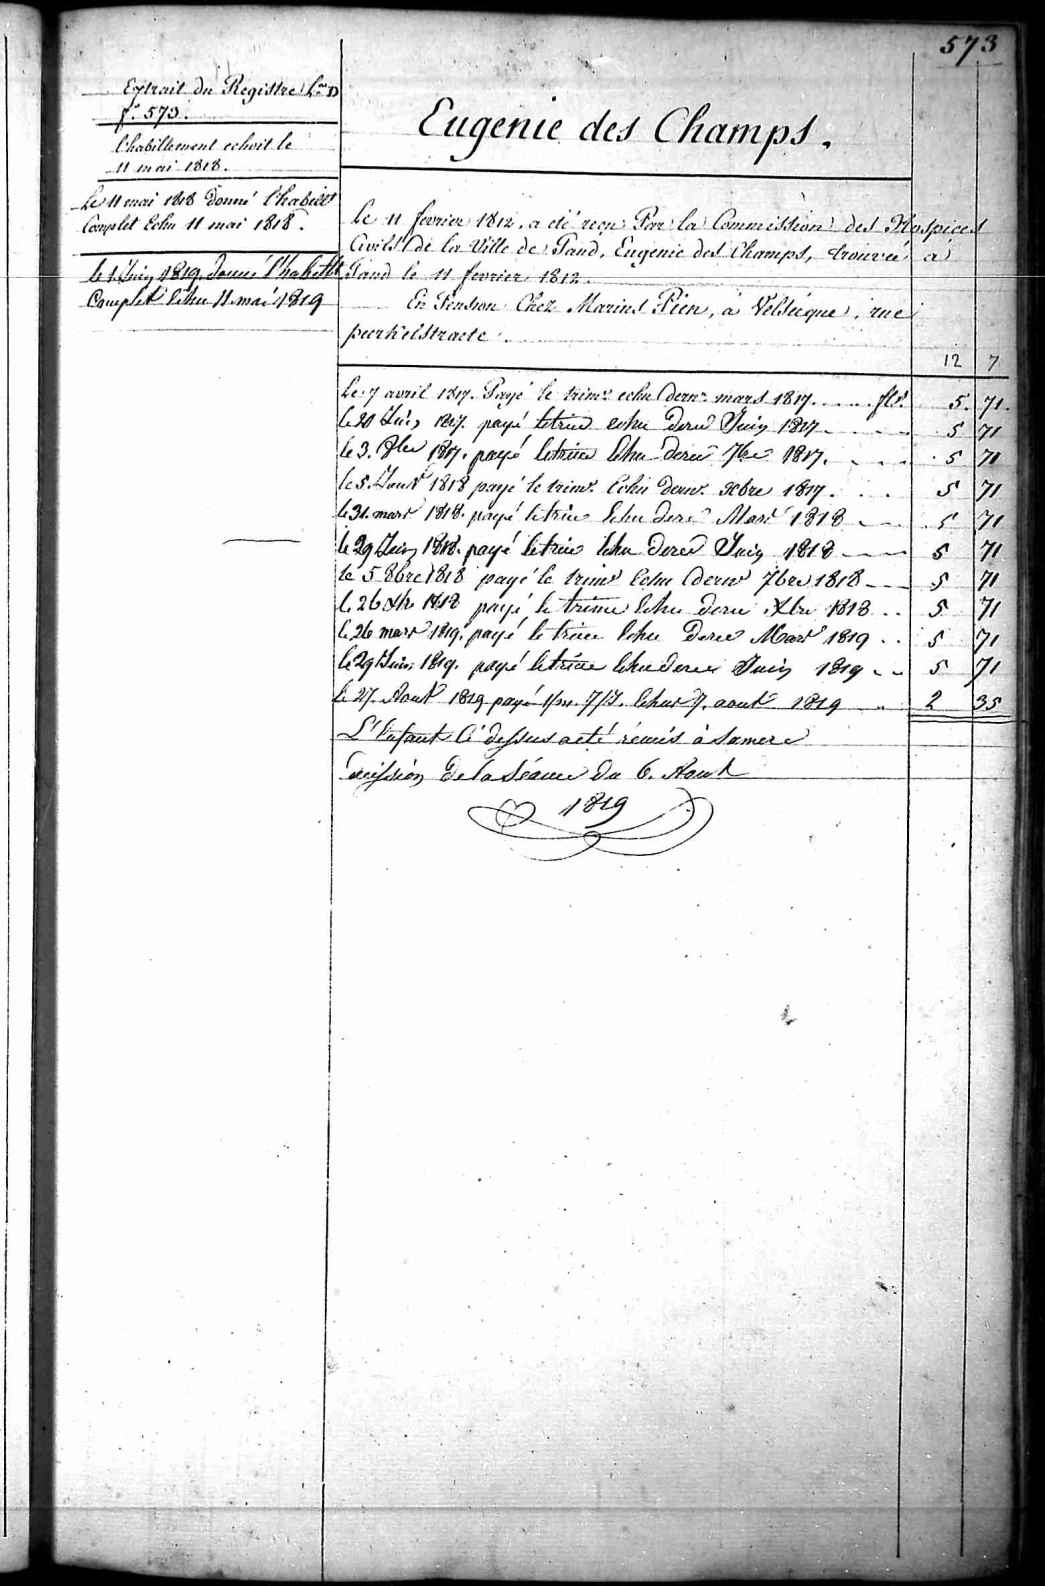 573
Extrait du Registre L.re D
f.o 573.
L'habillement echoit le
11 mai 1818.
Le 11 mai 1818 Donné l'habillt
Complet Echu 11 mai 1818.
le 1 Juin 1819 donné l'habillt
Complet Echu 11 mai 1819
Eugenie des Champs.
Le 11 fevrier 1812, a eté reçu Par la Commission des Hospices
Civils de la Ville de Gand, Eugenie des Champs, trouvée à
Gand le 11 fevrier 1812.
En Pension Chez Marins Pien, à Velseique, rue
12 7
Le 7 avril 1817. Payé le trimr echu dernr mars 1817. fls. 5. 71.
le 20 Juin 1817. payé le trim echu derner Juin 1817 5 71
le 3. 8bre 1817. payé le trim Echu derner 7bre 1817. 5 71
le 5. Janvr 1818 payé le trimr. Echu dernr. Xbre 1817. 5 71
le 31. mars 1818. payé le trim Echu derner Mars 1818 5 71
le 29 Juin 1818. payé le trim Echu derner Juin 1818 5 71
le 5 8bre 1818 payé le trimr Echu dernr 7bre 1818 5 71
le 26 Xbr 1818 payé le trim Echu derner Xbre 1818 5 71
le 26 mars 1819. payé le trim Echu derner Mars 1819 5 71
le 29 Juin 1819. payé le trim Echu derner Juin 1819 5 71
le 27. Aout 1819 payé 1/m. 7/J. Echus 7. aout 1819 2 35
L'Enfant Ci dessus a eté remis à sa mere
decission de la Séance du 6. Aout
1819